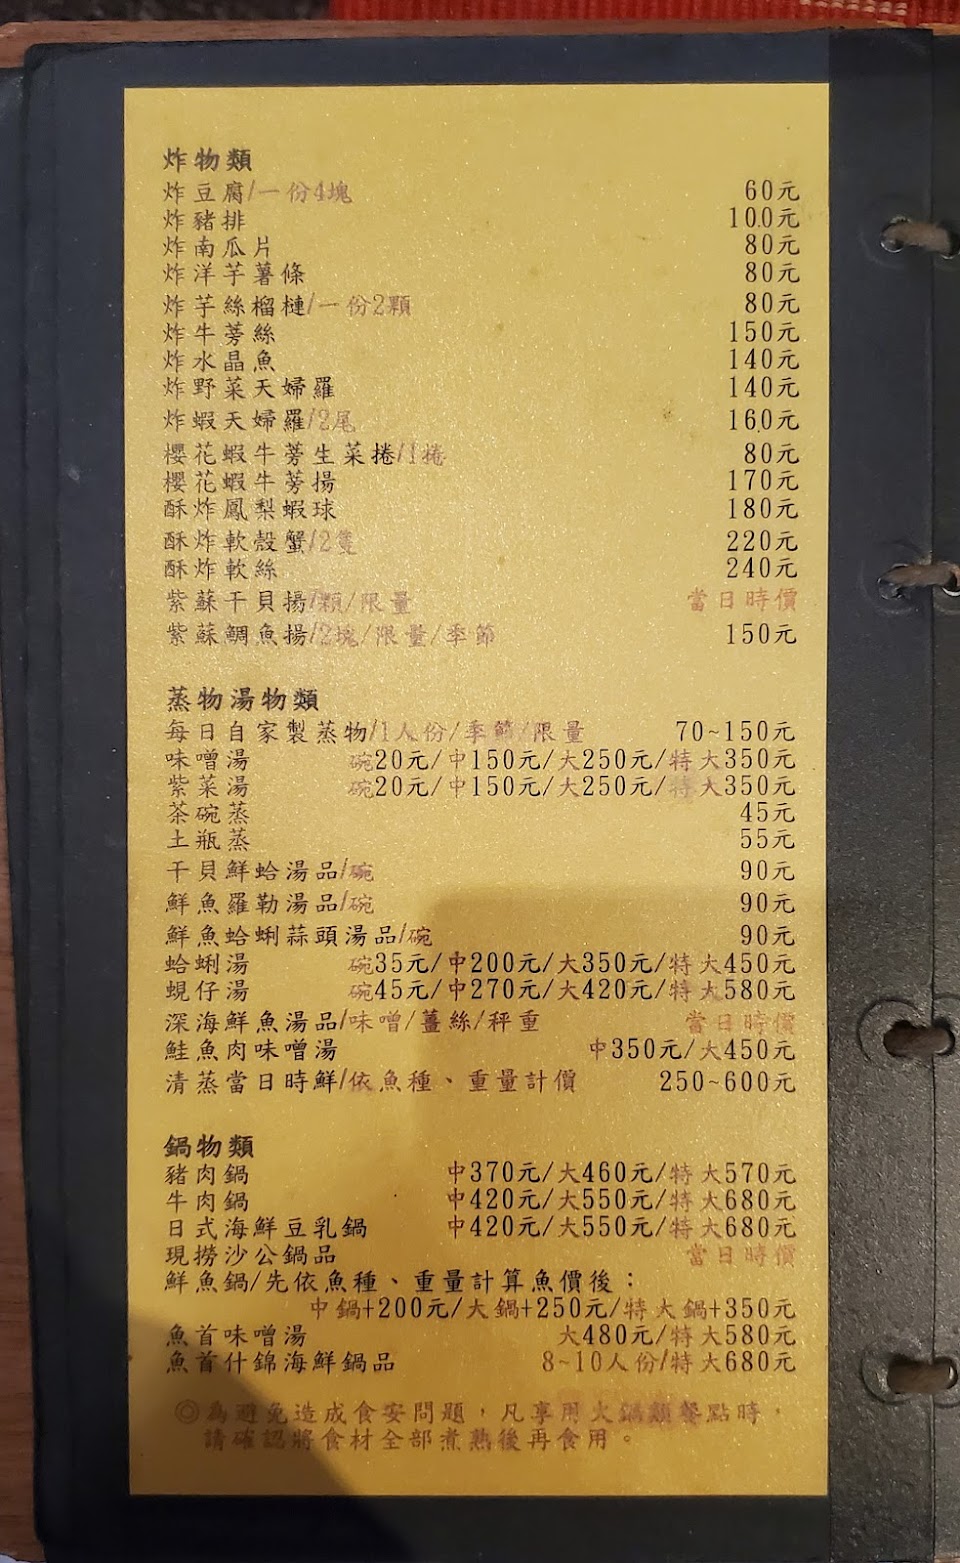 炸物類
炸豆腐/一份4塊 60元
炸豬排 100元
炸南瓜片 80元
炸洋芋薯條 80元
炸芋絲榴槤/一份2顆 80元
炸牛蒡絲 150元
炸水晶魚 140元
炸野菜天婦羅 140元
炸蝦天婦羅/2尾 160元
櫻花蝦牛蒡生菜捲/1捲 80元
櫻花蝦牛蒡揚 170元
酥炸鳳梨蝦球 180元
酥炸軟殼蟹/2隻 220元
酥炸軟絲 240元
紫蘇干貝揚/顆/限量 當日時價
紫蘇鯛魚揚/2塊/限量/季節 150元
蒸物湯物類
每日自家製蒸物/1人份/季節/限量 70~150元
味噌湯 碗20元/中150元/大250元/特大350元
紫菜湯 碗20元/中150元/大250元/特大350元
茶碗蒸 45元
土瓶蒸 55元
干貝鮮蛤湯品/碗 90元
鮮魚羅勒湯品/碗 90元
鮮魚蛤蜊蒜頭湯品/碗 90元
蛤蜊湯 碗35元/中200元/大350元/特大450元
蜆仔湯 碗45元/中270元/大420元/特大580元
深海鮮魚湯品/味噌/薑絲/秤重 當日時價
鮭魚肉味噌湯 中350元/大450元
清蒸當日時鮮/依魚種、重量計價 250~600元
鍋物類
豬肉鍋 中370元/大460元/特大570元
牛肉鍋 中420元/大550元/特大680元
日式海鮮豆乳鍋 中420元/大550元/特大680元
現撈沙公鍋品 當日時價
鮮魚鍋/先依魚種、重量計算魚價後：
中鍋+200元/大鍋+250元/特大鍋+350元
魚首味噌湯 大480元/特大580元
魚首什錦海鮮鍋品 8~10人份/特大680元
◎為避免造成食安問題，凡享用火鍋類餐點時，
請確認將食材全部煮熟後再食用。